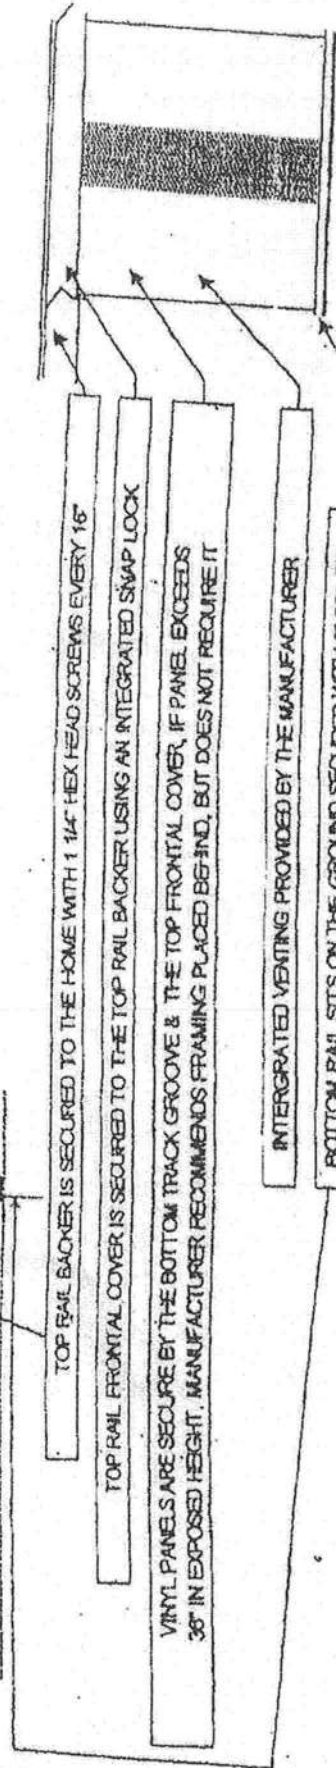 TOP RAIL BACKER IS SECURED TO THE HOME WITH 1 1/4" HEX HEAD SCREWS EVERY 16"
TOP RAIL FRONTAL COVER IS SECURED TO THE TOP RAIL BACKER USING AN INTEGRATED SNAP LOCK
VINYL PANELS ARE SECURE BY THE BOTTOM TRACK GROOVE & THE TOP FRONTAL COVER, IF PANEL EXCEEDS
36" IN EXPOSED HEIGHT, MANUFACTURER RECOMMENDS FRAMING PLACED BEHIND, BUT DOES NOT REQUIRE IT
INTERGRATED VENTING PROVIDED BY THE MANUFACTURER
BOTTOM RAIL SITS ON THE GROUND SECURED WITH